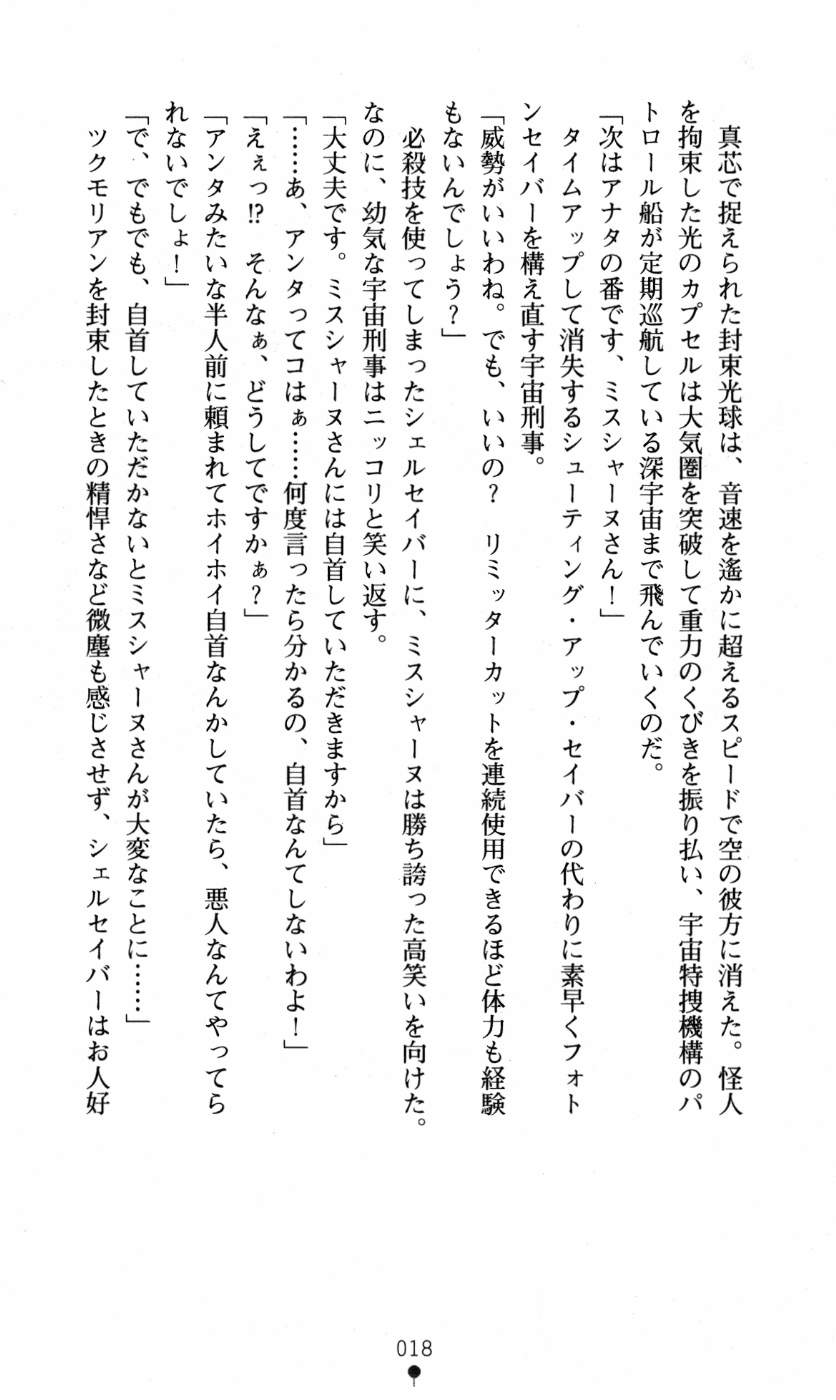 真芯で捉えられた封束光球は、音速を遙かに超えるスピードで空の彼方に消えた。怪人
を拘束した光のカプセルは大気圏を突破して重力のくびきを振り払い、宇宙特捜機構のパ
トロール船が定期巡航している深宇宙まで飛んでいくのだ。
「次はアナタの番です、ミスシャーヌさん！」
タイムアップして消失するシューティング・アップ・セイバーの代わりに素早くフォト
ンセイバーを構え直す宇宙刑事。
「威勢がいいわね。でも、いいの？　リミッターカットを連続使用できるほど体力も経験
もないんでしょう？」
必殺技を使ってしまったシェルセイバーに、ミスシャーヌは勝ち誇った高笑いを向けた。
なのに、幼気な宇宙刑事はニッコリと笑い返す。
「大丈夫です。ミスシャーヌさんには自首していただきますから」
「……あ、アンタってコはぁ……何度言ったら分かるの、自首なんてしないわよ！」
「えぇっ!?　そんなぁ、どうしてですかぁ？」
「アンタみたいな半人前に頼まれてホイホイ自首なんかしていたら、悪人なんてやってら
れないでしょ！」
「で、でもでも、自首していただかないとミスシャーヌさんが大変なことに……」
ツクモリアンを封束したときの精悍さなど微塵も感じさせず、シェルセイバーはお人好
018